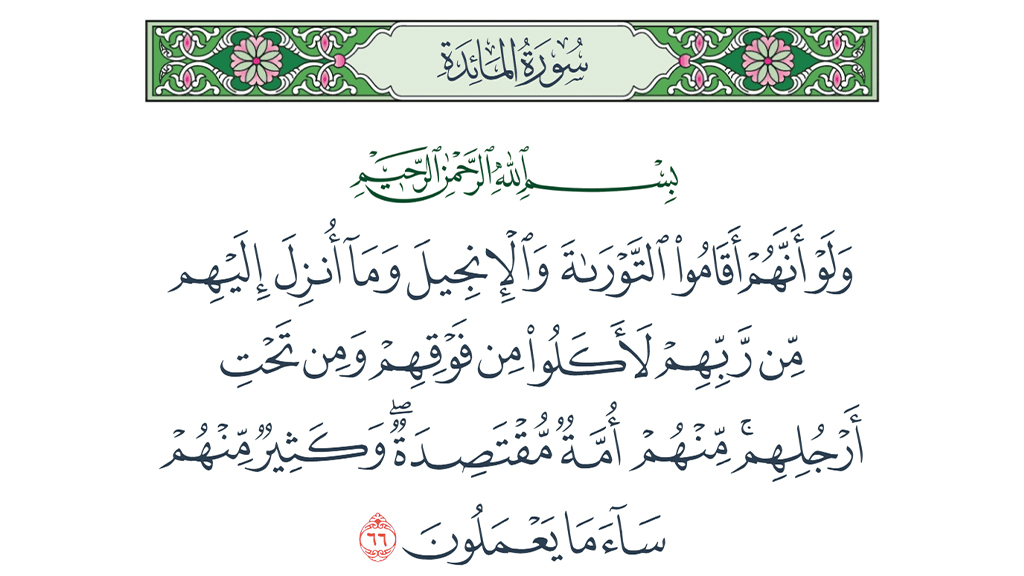 سُورَةُ المَائِدَةِ
بِسْمِ ٱللَّهِ ٱلرَّحْمَٰنِ ٱلرَّحِيمِ
وَلَوْ أَنَّهُمْ أَقَامُوا۟ ٱلتَّوْرَىٰةَ وَٱلْإِنجِيلَ وَمَآ أُنزِلَ إِلَيْهِم
مِّن رَّبِّهِمْ لَأَكَلُوا۟ مِن فَوْقِهِمْ وَمِن تَحْتِ
أَرْجُلِهِم ۚ مِّنْهُمْ أُمَّةٌ مُّقْتَصِدَةٌ ۖ وَكَثِيرٌ مِّنْهُمْ
سَآءَ مَا يَعْمَلُونَ ٦٦